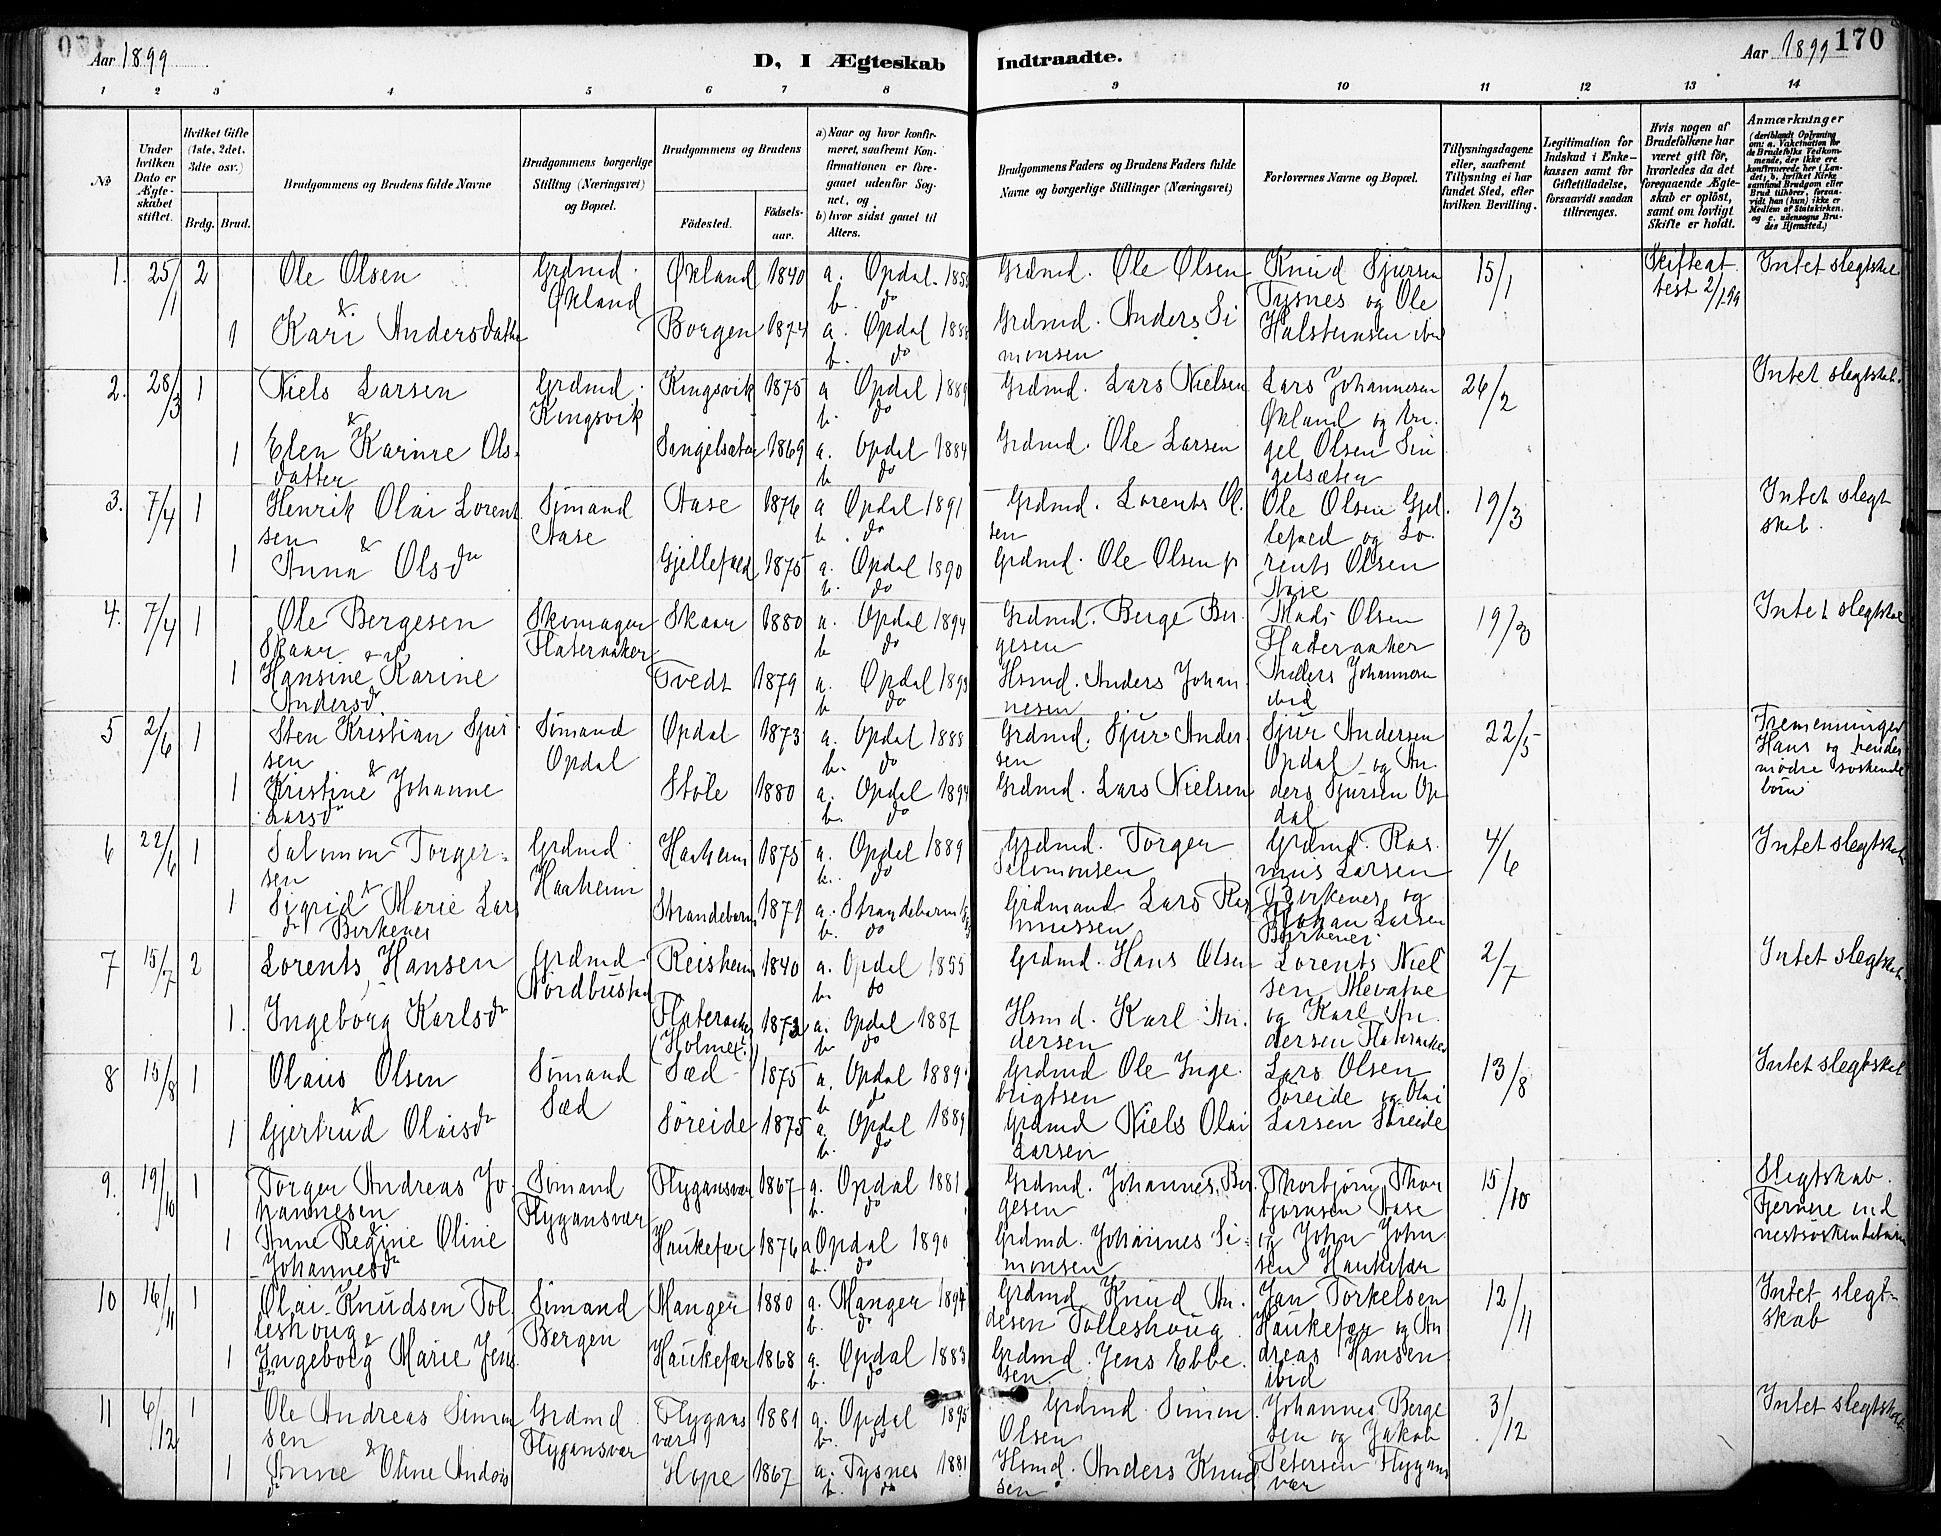 Aar 1899
D, I Ægteskab Indtraadte.
Aar 1899 170
1 2 3 4 5 6 7 8 9 10 11 12 13 14
No
Under hvilken Dato er Ægteskabet stiftet.
Hvilket Gifte (1ste, 2det, 3die osv.)
Brdg. Brud.
Brudgommens og Brudens fulde Navne
Brudgommens borgerlige Stilling (Næringsvei) og Bopæl.
Brudgommens og Brudens
Fødested. Fødselsaar.
a) Naar og hvor konfirmeret, saafremt Konfirmationen er foregaaet udenfor Sognet, og
b) hvor sidst gaaet til Alters.
Brudgommens Faders og Brudens Faders fulde Navne og borgerlige Stillinger (Næringsvei)
Forlovernes Navne og Bopæl.
Tillysningsdagene eller, saafremt Tillysning ei har fundet Sted, efter hvilken Bevilling.
Legitimation for Indskud i Enkekassen samt for Giftetilladelse, forsaavidt saadan tiltrænges.
Hvis nogen af Brudefolkene har været gift før, hvorledes da det foregaaende Ægteskab er opløst, samt om lovligt Skifte er holdt.
Anmærkninger
(deriblandt Oplysning om: a. Vaksination for de Brudefolks Vedkommende, der ikke ere konfirmerede her i Landet, b. hvilket Kirkesamfund Brudgom eller Brud tilhører, forsaavidt han (hun) ikke er Medlem af Statskirken, og c. udensogns Brudes Hjemsted.)
1. 25/1 2 Ole Olsen Grdmd. Økland Økland 1840 a. Opdal b. do Grdmd. Ole Olsen Knud Sjursen Tysnes og Ole Halstensen ibd 15/1 Skifteattest 2/1 99 Intet slegtskab
& 1 Kari Andersdatter Borgen 1874 a. Opdal b. do Grdmd. Anders Simonsen
2. 28/3 1 Niels Larsen Grdmd. Kingsvik Kingsvik 1875 a Opdal 1889 b. do Grdmd. Lars Nielsen Lars Johannesen Økland og Engel Olsen Singelsæter 26/2 Intet slegtskab.
& 1 Elen Karine Olsdatter Singelsæter 1869 a. Opdal 1884 b do Grdmd. Ole Larsen
3. 7/4 1 Henrik Olai Lorentsen Sømand Aase Aase 1876 a Opdal 1891 b. do Grdmd. Lorents Olsen Ole Olsen Gjellefald og Lorents Olsen Aase 19/3 Intet slegtskab.
& 1 Anna Olsdr Gjellefald 1875 a. Opdal 1890 b. do Grdmd. Ole Olsen
4. 7/4 1 Ole Bergesen Skaar Skomager Flateraaker Skaar 1880 a. Opdal 1894 b do Grdmd. Berge Bergesen Mads Olsen Fladeraaker Anders Johannesen ibid 19/3 Intet slegtskab
& 1 Hansine Karine Andersdr Tvedt 1879 a. Opdal 1893 b do Hsmd. Anders Johannesen
5 2/6 1 Sten Kristian Sjursen Sømand Opdal Opdal 1873 a. Opdal 1888 b. do Grdmd. Sjur Andersen Sjur Andersen Opdal og Anders Sjursen Opdal 22/5 Tremenninger Hans og hendes mødre søskendebørn
& 1 Kristine Johanne Larsdr Støle 1880 a. Opdal 1894 b. do Grdmd. Lars Nielsen
6 22/6 1 Salomon Torgersen Grdmd. Haaheim Haaheim 1875 a. Opdal 1889 b. do Grdmd. Torger Salomonsen Grdmd. Rasmus Larsen Birkenes og Johan Larsen Birkenes 4/6 Intet slegtskab
& 1 Sigrid Marie Larsdr Birkenes Strandebarm 1871 a. Strandebarm b. do Grdmand Lars Rasmussen
7 15/7 2 Lorents Hansen Grdmd Nordbustad Reisheim 1840 a. Opdal 1855 b. do Grdmd. Hans Olsen Lorents Nielsen Alevatne og Karl Andersen Flateraaker 2/7 Intet slegtskab
1. Ingeborg Karlsdr Flateraaker (Holmen) 1872 a. Opdal 1887 b do Hsmd. Karl Andersen
8 15/8 1 Olaus Olsen Sømand Sæd Sæd 1875 a. Opdal 1889 b do Grdmd Ole Ingebrigtsen Lars Olsen Søreide og Olai Larsen Søreide 13/8 Intet slegtskab
& 1 Gjertrud Olaisdr Søreide 1875 a. Opdal 1889 b. do Grdmd Niels Olai Larsen
9. 19/10 1 Torger Andreas Johannesen Sømand Flygansvær Flygansvær 1867 a. Opdal 1881 b. do Grdmd. Johannes Bergesen Thorbjørn Thorbjørnsen Aase og John Johnsen Haukefær 15/10 Slegtskab. Fjernere end nestsøskendebørn
& 1 Anne Regine Oline Johannesdr Haukefær 1876 a Opdal 1890 b. do Grdmd. Johannes Simonsen
10 16/11 1 Olai Knudsen Tolleshoug Sømand Bergen Manger 1880 a. Manger 1894 b. do Grdmd. Knud Andesen Tolleshoug Jan Torkelsen Haukefær og Andreas Hansen ibid 12/11 Intet slegtskab
& 1 Ingeborg Marie Jensdr Haukefær 1868 a. Opdal 1883 b. do Grdmd. Jens Ebbesen
11 6/12 1 Ole Andreas Simonsen Grdmd. Flygansvær Flygansvær 1881 a. Opdal 1895 b. do Grdmd. Simon Olsen Johannes Bergesen og Jakob Petersen Flygansvær 3/12 Intet slegtskab
& 1 Anne Oline Andersdr Hope 1867 a. Tysnes 1881 b. do Hsmd. Anders Knudsen